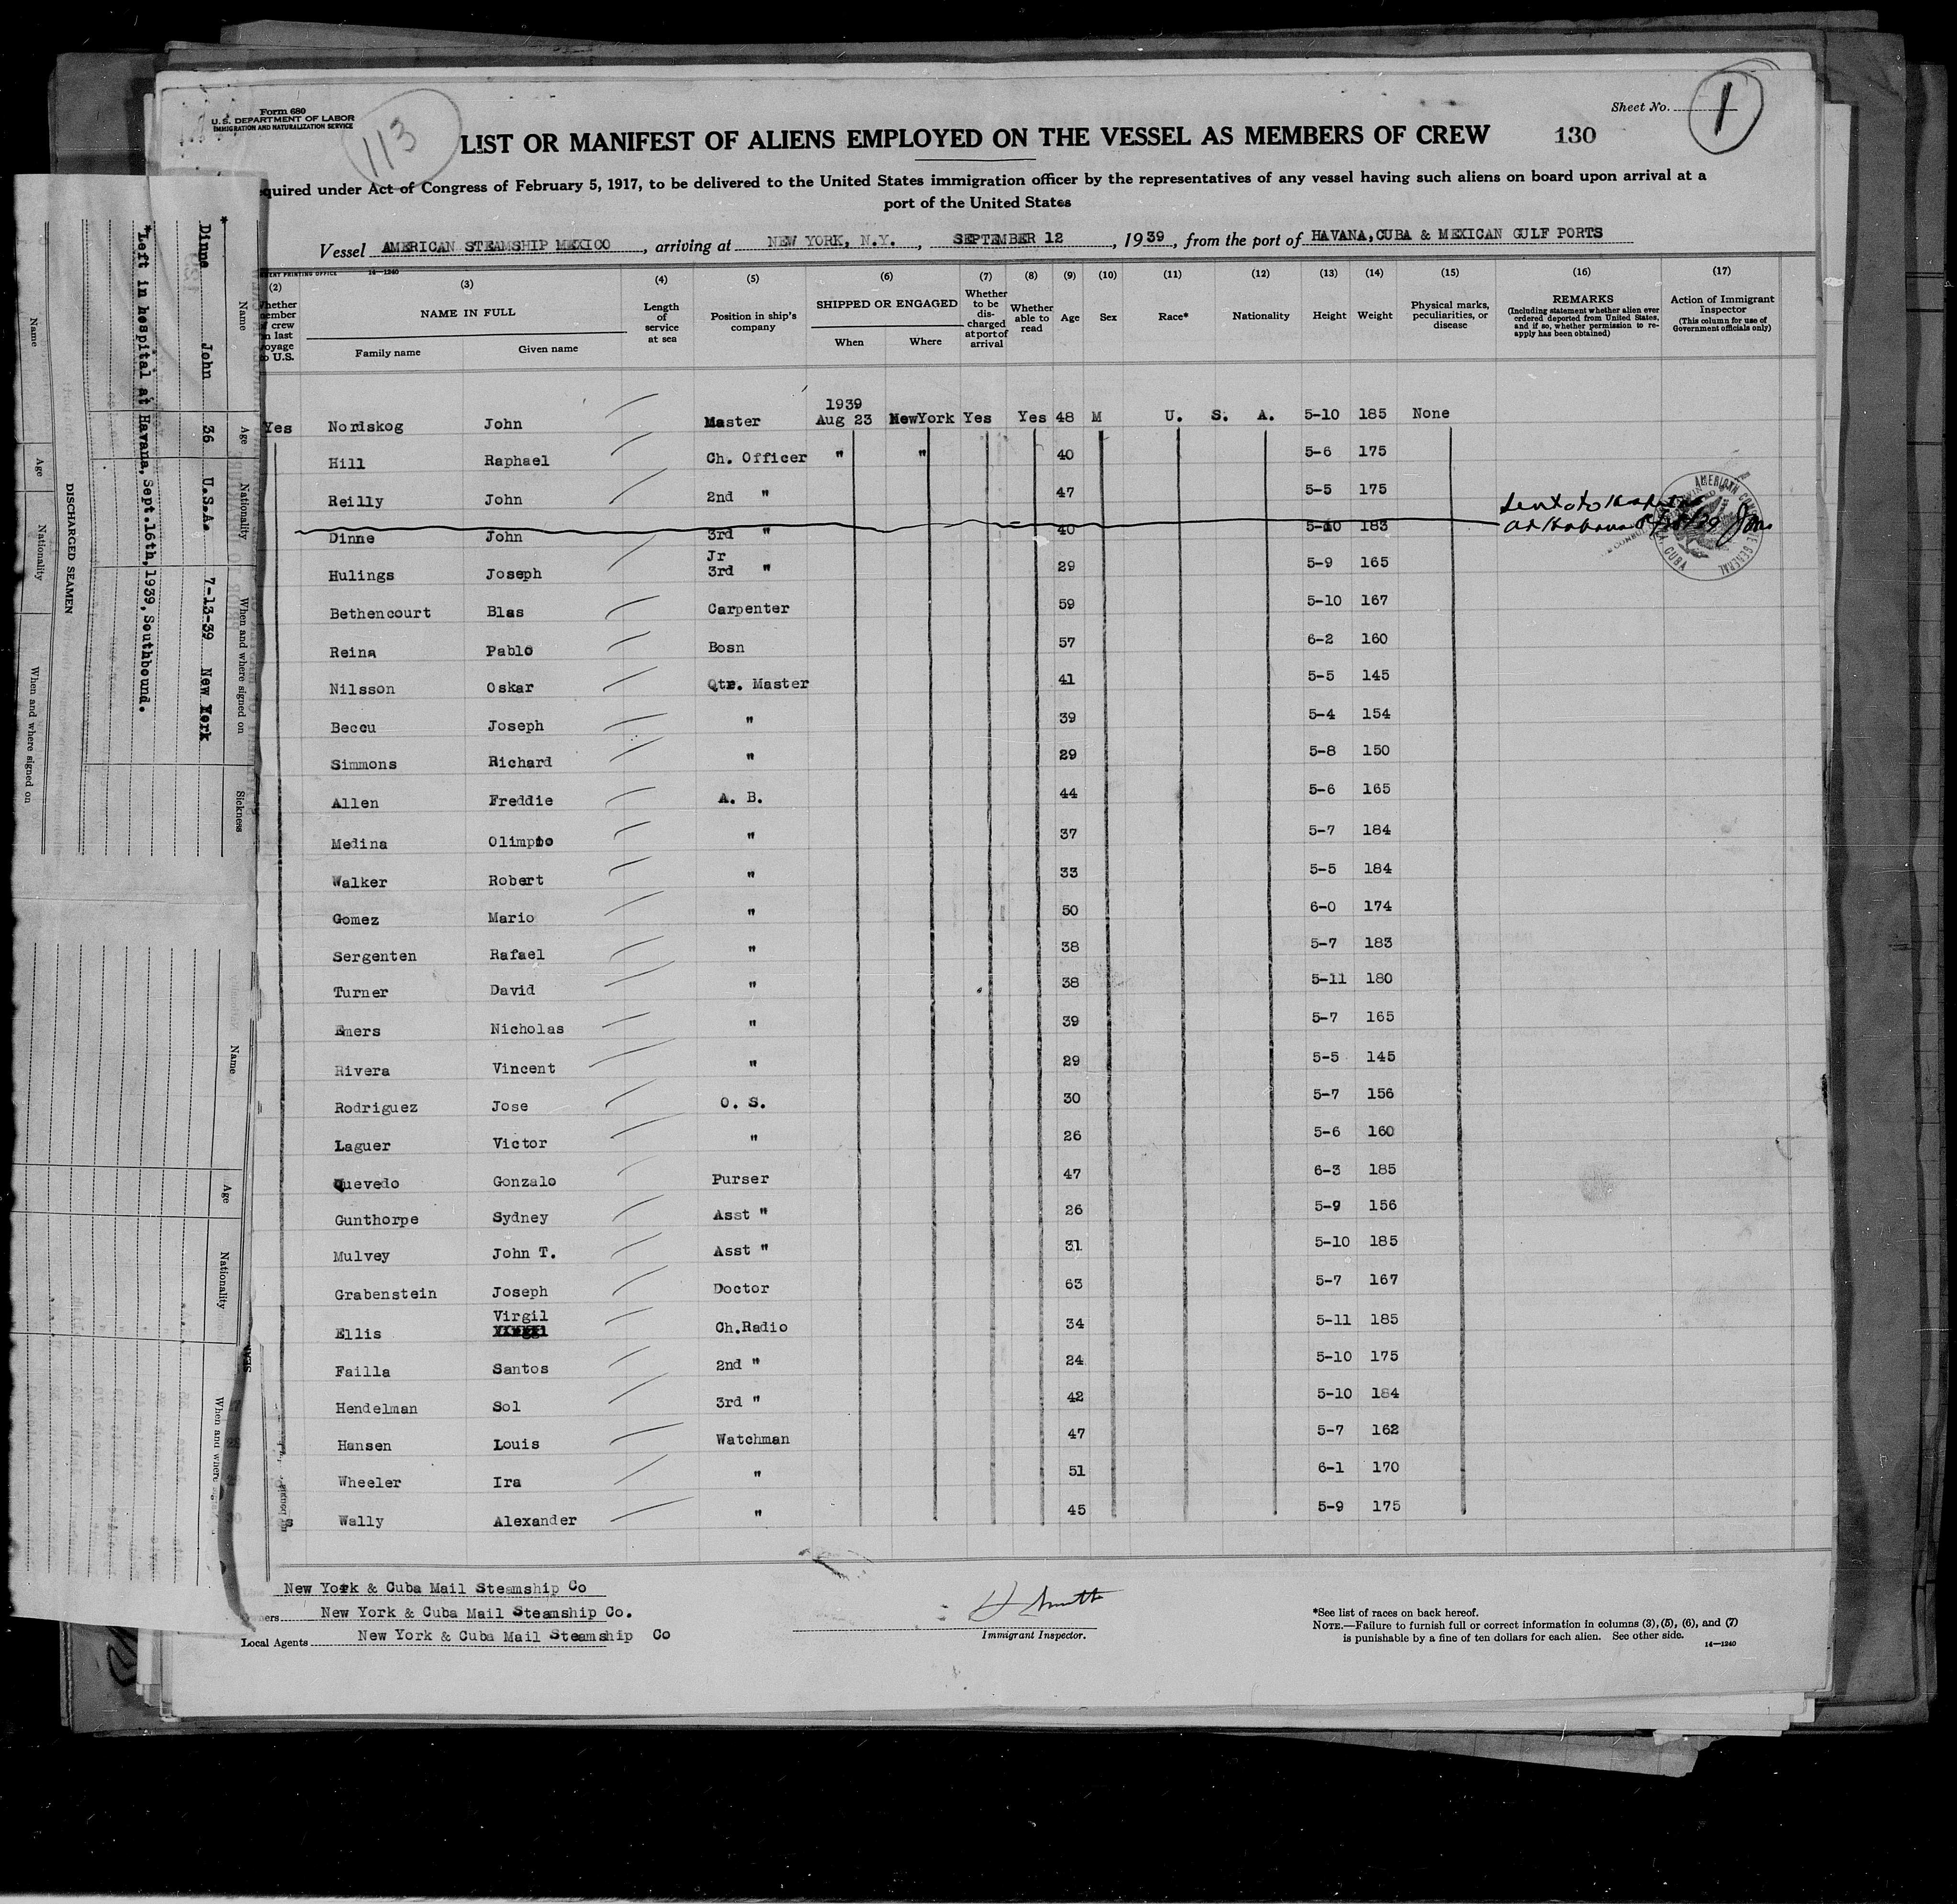 Form 680
U. S. DEPARTMENT OF LABOR
IMMIGRATION AND NATURALIZATION SERVICE
113
Sheet No. 1
LIST OR MANIFEST OF ALIENS EMPLOYED ON THE VESSEL AS MEMBERS OF CREW
130
quired under Act of Congress of February 5, 1917, to be delivered to the United States immigration officer by the representatives of any vessel having such aliens on board upon arrival at a
port of the United States
Vessel AMERICAN STEAMSHIP MEXICO, arriving at NEW YORK, N.Y., SEPTEMBER 12, 1939, from the port of HAVANA,CUBA & MEXICAN GULF PORTS
PRINTING OFFICE 14—1240
(2) (3) (4) (5) (6) (7) (8) (9) (10) (11) (12) (13) (14) (15) (16) (17)
Whether member of crew on last voyage to U.S.
NAME IN FULL
Family name Given name
Length of service at sea
Position in ship's company
SHIPPED OR ENGAGED
When Where
Whether to be discharged at port of arrival
Whether able to read
Age Sex Race* Nationality Height Weight
Physical marks, peculiarities, or disease
REMARKS
(Including statement whether alien ever ordered deported from United States, and if so, whether permission to re-apply has been obtained)
Action of Immigrant Inspector
(This column for use of Government officials only)
1939
Yes Nordskog John Master Aug 23 NewYork Yes Yes 48 M U. S. A. 5-10 185 None
Hill Raphael Ch. Officer " " 40 5-6 175
Reilly John 2nd " 47 5-5 175
Dinne John 3rd " 40 5-10 183
Hulings Joseph Jr 3rd " 29 5-9 165
Bethencourt Blas Carpenter 59 5-10 167
Reina Pablo Bosn 57 6-2 160
Nilsson Oskar Qtr. Master 41 5-5 145
Beccu Joseph " 39 5-4 154
Simmons Richard " 29 5-8 150
Allen Freddie A. B. 44 5-6 165
Medina Olimpio " 37 5-7 184
Walker Robert " 33 5-5 184
Gomez Mario " 50 6-0 174
Sergenten Rafael " 38 5-7 183
Turner David " 38 5-11 180
Emers Nicholas " 39 5-7 165
Rivera Vincent " 29 5-5 145
Rodriguez Jose O. S. 30 5-7 156
Laguer Victor " 26 5-6 160
Quevedo Gonzalo Purser 47 6-3 185
Gunthorpe Sydney Asst " 26 5-9 156
Mulvey John T. Asst " 31 5-10 185
Grabenstein Joseph Doctor 63 5-7 167
Ellis Virgil Ch.Radio 34 5-11 185
Failla Santos 2nd " 24 5-10 175
Hendelman Sol 3rd " 42 5-10 184
Hansen Louis Watchman 47 5-7 162
Wheeler Ira " 51 6-1 170
s Wally Alexander " 45 5-9 175
AMERICAN CONSULATE GENERAL
CUBA
New York & Cuba Mail Steamship Co
New York & Cuba Mail Steamship Co.
Local Agents New York & Cuba Mail Steamship Co
Immigrant Inspector.
*See list of races on back hereof.
NOTE.—Failure to furnish full or correct information in columns (3), (5), (6), and (7)
is punishable by a fine of ten dollars for each alien. See other side.
14—1240
Name Age Nationality When and where signed on Sickness
*
Dinne John 36 U.S.A. 7-13-39 New York
*Left in hospital at Havana, Sept.16th,1939,Southbound.
DISCHARGED SEAMEN
Name Age Nationality When and where signed on
Name Age Nationality When and where